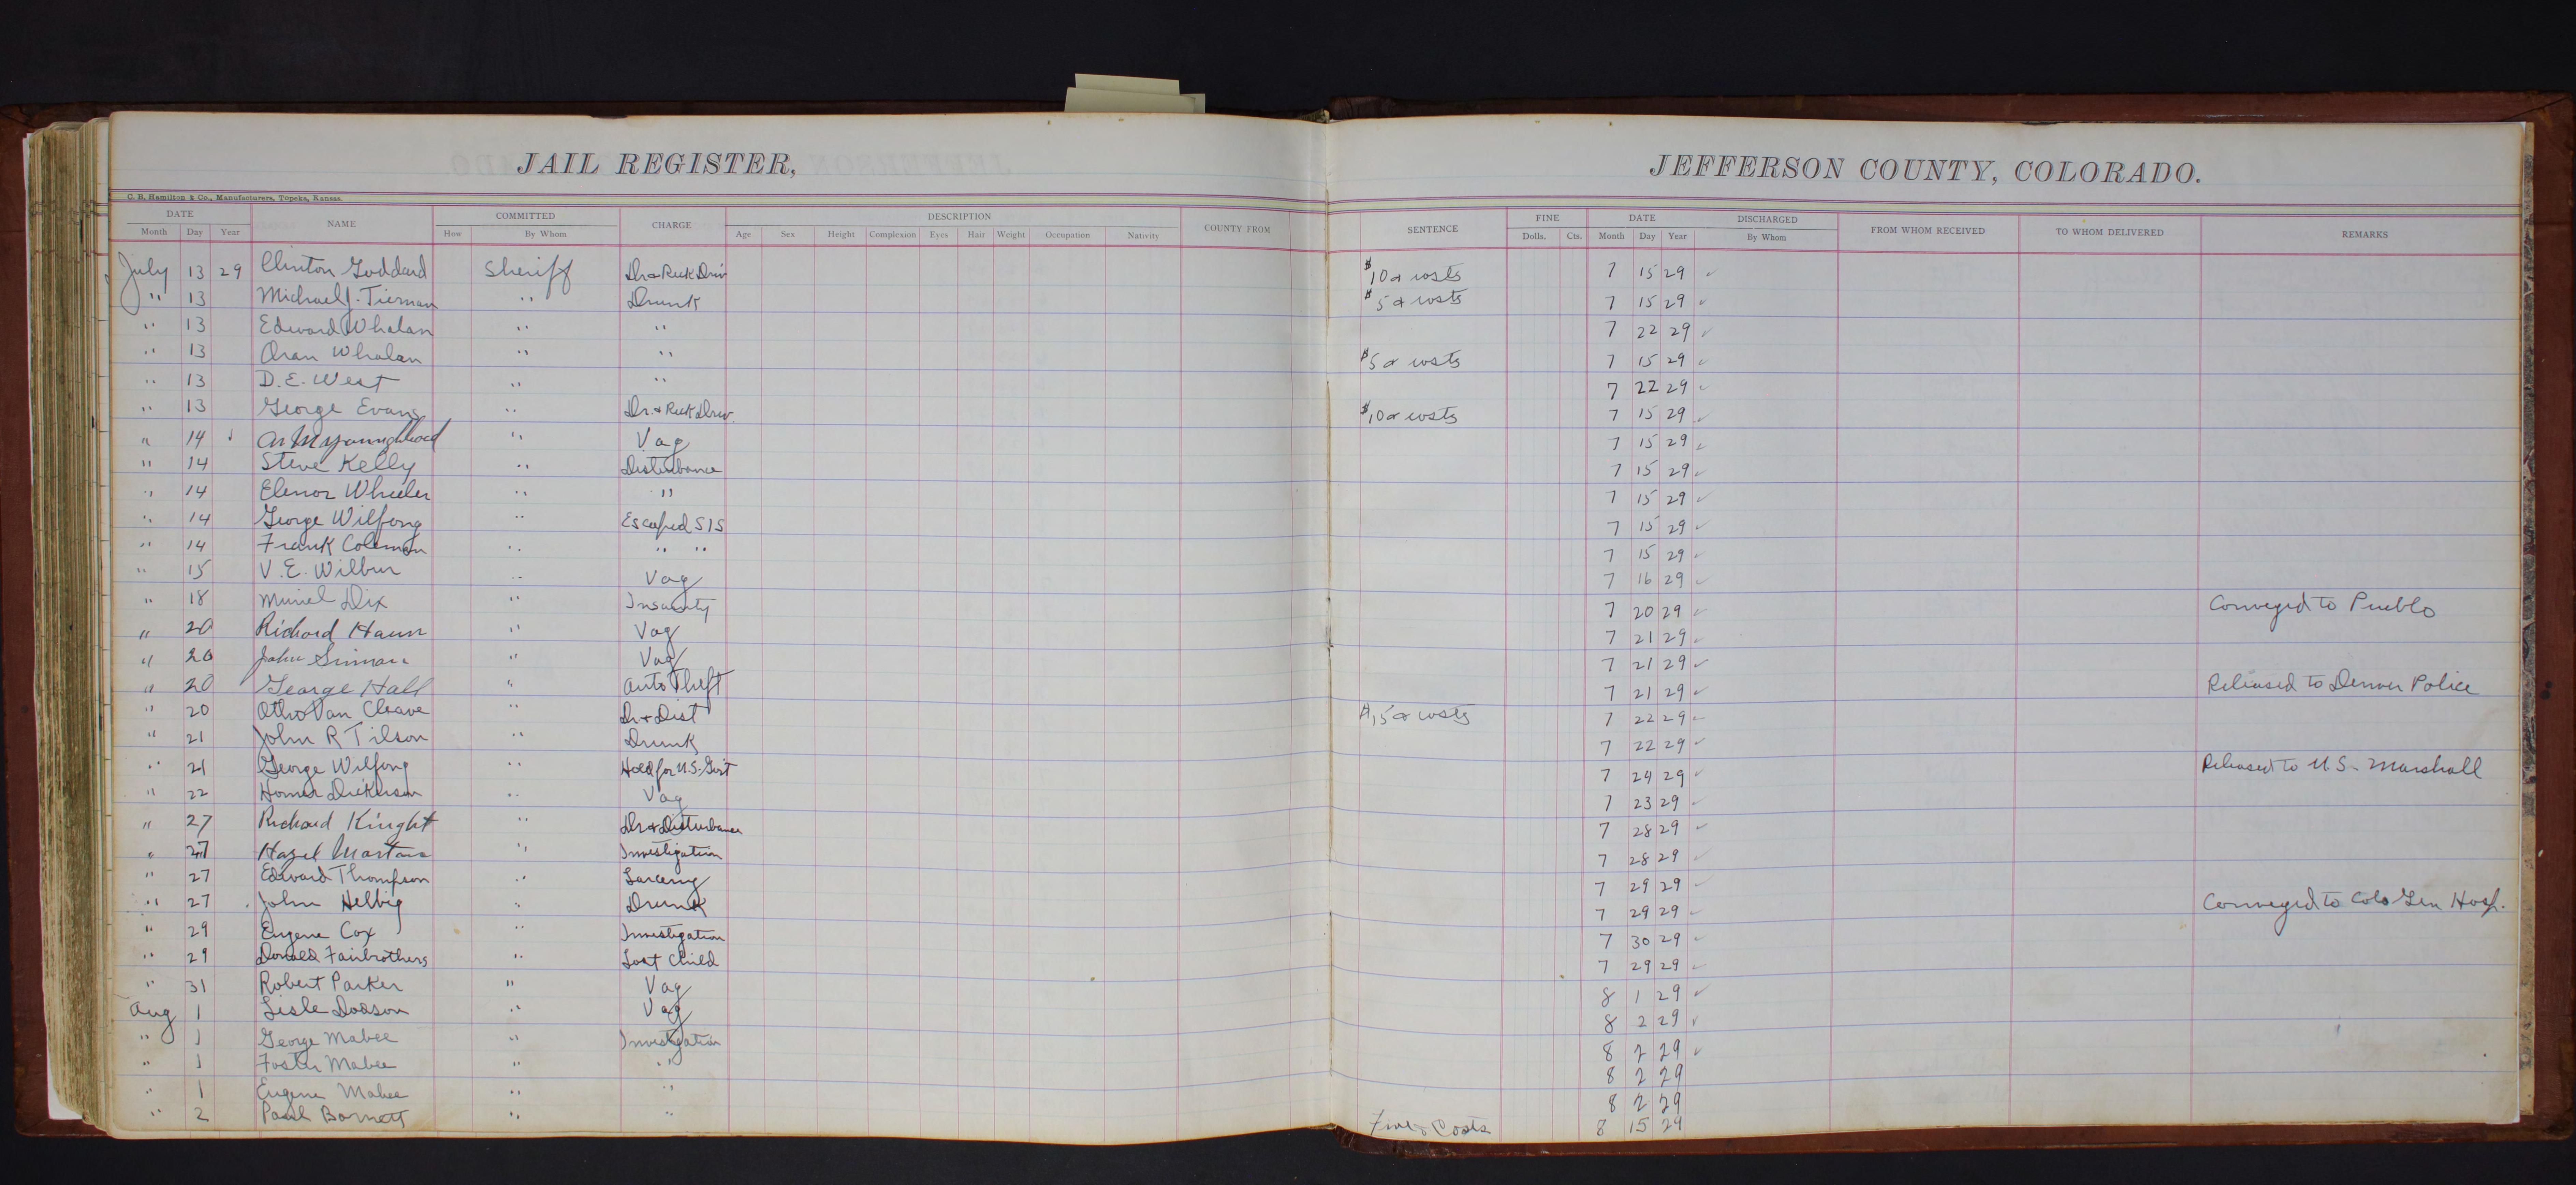 JAIL REGISTER,
JEFFERSON COUNTY, COLORADO.
C. B. Hamilton & Co., Manufacturers, Topeka, Kansas.
DATE NAME COMMITTED CHARGE DESCRIPTION COUNTY FROM SENTENCE FINE DATE DISCHARGED FROM WHOM RECEIVED TO WHOM DELIVERED REMARKS
Month Day Year How By Whom Age Sex Height Complexion Eyes Hair Weight Occupation Nativity Dolls. Cts. Month Day Year By Whom
July 13 29 Clinton Goddard Sheriff Dr & Reck Driv $10 & costs 7 15 29 ✓
" 13 Michael J. Tiernan " Drunk $5 & costs 7 15 29 ✓
" 13 Edward Whalan " " 7 22 29 ✓
" 13 Oran Whalan " " $5 & costs 7 15 29 ✓
" 13 D. E. West " " 7 22 29 ✓
" 13 George Evans " Dr. & Reck Driv. $10 & costs 7 15 29 ✓
" 14 " Vag 7 15 29 ✓
" 14 Steve Kelly " Disturbance 7 15 29 ✓
" 14 Elenor Wheeler " " 7 15 29 ✓
" 14 George Wilfong " Escaped SIS 7 15 29 ✓
" 14 Frank Coleman " " " 7 15 29 ✓
" 15 V. E. Wilbur " Vag 7 16 29 ✓
" 18 Muriel Dix " Insanity 7 20 29 ✓ Conveyed to Pueblo
" 20 Richard Haun " Vag 7 21 29 ✓
" 20 John " Vag 7 21 29 ✓
" 20 George Hall " Auto Theft 7 21 29 ✓ Released to Denver Police
" 20 Otho Van Cleave " Dr & Dist $15 & costs 7 22 29 ✓
" 21 John R Tilson " Drunk 7 22 29 ✓
" 21 George Wilfong " Hold for U.S. Gov't 7 24 29 ✓ Released to U.S. Marshall
" 22 Homer Dickerson " Vag 7 23 29 ✓
" 27 Richard Kinght " Dr & Disturbance 7 28 29 ✓
" 27 Hazel " Investigation 7 28 29 ✓
" 27 Edward Thompson " Larceny 7 29 29 ✓
" 27 John Helbig " Drunk 7 29 29 ✓ Conveyed to Colo Gen Hosp.
" 29 Eugene Cox " Investigation 7 30 29 ✓
" 29 Donald Fairbrothers " Lost Child 7 29 29 ✓
" 31 Robert Parker " Vag 8 1 29 ✓
Aug 1 Lisle Dodson " Vag 8 2 29 ✓
" 1 George Mabee " Investigation 8 2 29 ✓
" 1 Foster Mabee " " 8 2 29
" 1 Eugene Mabee " " 8 2 29
" 2 Paul Barnett " " Fine & Costs 8 15 29